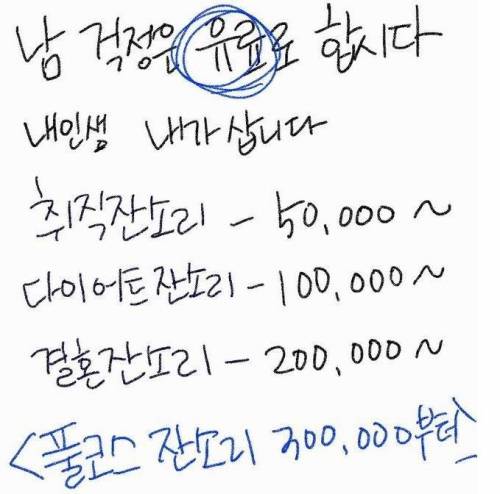 남 걱정은 유료로 합시다
내인생 내가삽니다
취직잔소리 - 50,000 ~
다이어트잔소리 - 100,000 ~
결혼잔소리 - 200,000 ~
<풀코스 잔소리 300,000부터>